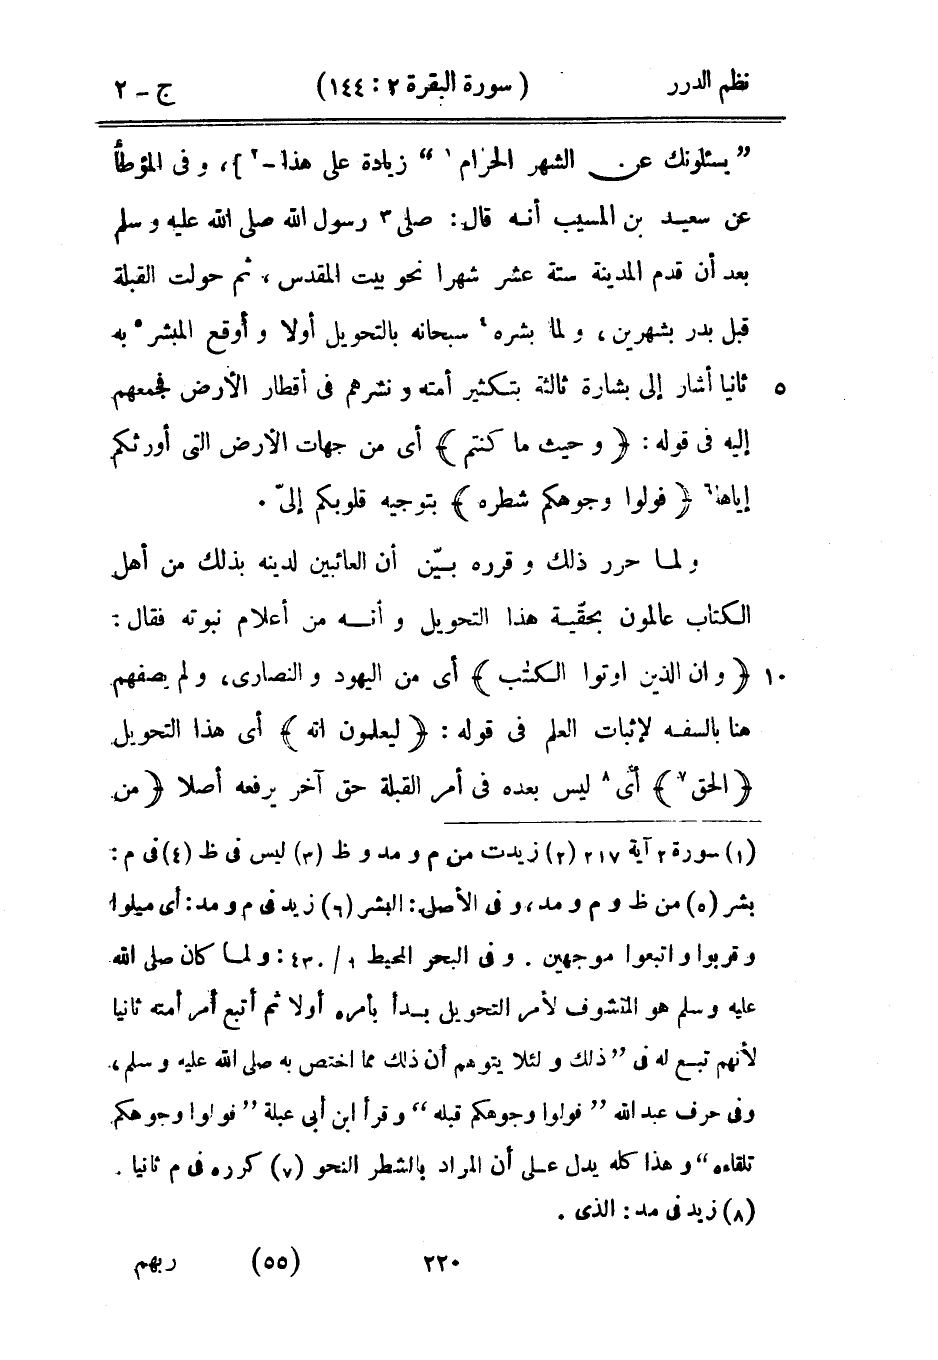 نظم الدرر ( سورة البقرة ٢ : ١٤٤ ) ج - ٢
” يسئلونك عن الشهر الحرام ١ “ زيادة على هذا - ٢ ] ، و فى المؤطأ
عن سعيد بن المسيب أنه قال : صلى ٣ رسول الله صلى الله عليه و سلم
بعد أن قدم المدينة ستة عشر شهرا نحو بيت المقدس ، ثم حولت القبلة
قبل بدر بشهرين ، و لما بشره ٤ سبحانه بالتحويل أولا و أوقع المبشر ٥ به
٥ ثانيا أشار إلى بشارة ثالثة بتكثير أمته و نشرهم فى أقطار الأرض فجمعهم
إليه فى قوله : ﴿ و حيث ما كنتم ﴾ أى من جهات الأرض التى أورثكم
إياها ٦ ﴿ فولوا وجوهكم شطره ﴾ بتوجيه قلوبكم إلىّ .
و لما حرر ذلك و قرره بيّن أن العائبين لدينه بذلك من أهل
الكتاب عالمون بحقّية هذا التحويل و أنه من أعلام نبوته فقال :
١٠ ﴿ و ان الذين اوتوا الكتٰب ﴾ أى من اليهود و النصارى ، و لم يصفهم
هنا بالسفه لإثبات العلم فى قوله : ﴿ ليعلمون انه ﴾ أى هذا التحويل
﴿ الحق ٧ ﴾ أى ٨ ليس بعده فى أمر القبلة حق آخر يرفعه أصلا ﴿ من
(١) سورة ٢ آية ٢١٧ (٢) زيدت من م و مد و ظ (٣) ليس فى ظ (٤) فى م :
بشر (٥) من ظ و م و مد ، و فى الأصل : البشر (٦) زيد فى م و مد : أى ميلوا
و قربوا و اتبعوا موجهين . و فى البحر المحيط ١ / ٤٣٠ : و لما كان صلى الله
عليه و سلم هو المتشوف لأمر التحويل بدأ بأمره أولا ثم أتبع أمر أمته ثانيا
لأنهم تبع له فى ” ذلك و لئلا يتوهم أن ذلك مما اختص به صلى الله عليه و سلم ،
وفى حرف عبد الله ” فولوا وجوهكم قبله “ و قرأ ابن أبى عبلة ” فولوا وجوهكم
تلقاءه “ و هذا كله يدل على أن المراد بالشطر النحو (٧) كرره فى م ثانيا .
(٨) زيد فى مد : الذى .
٢٢٠ (٥٥) ربهم